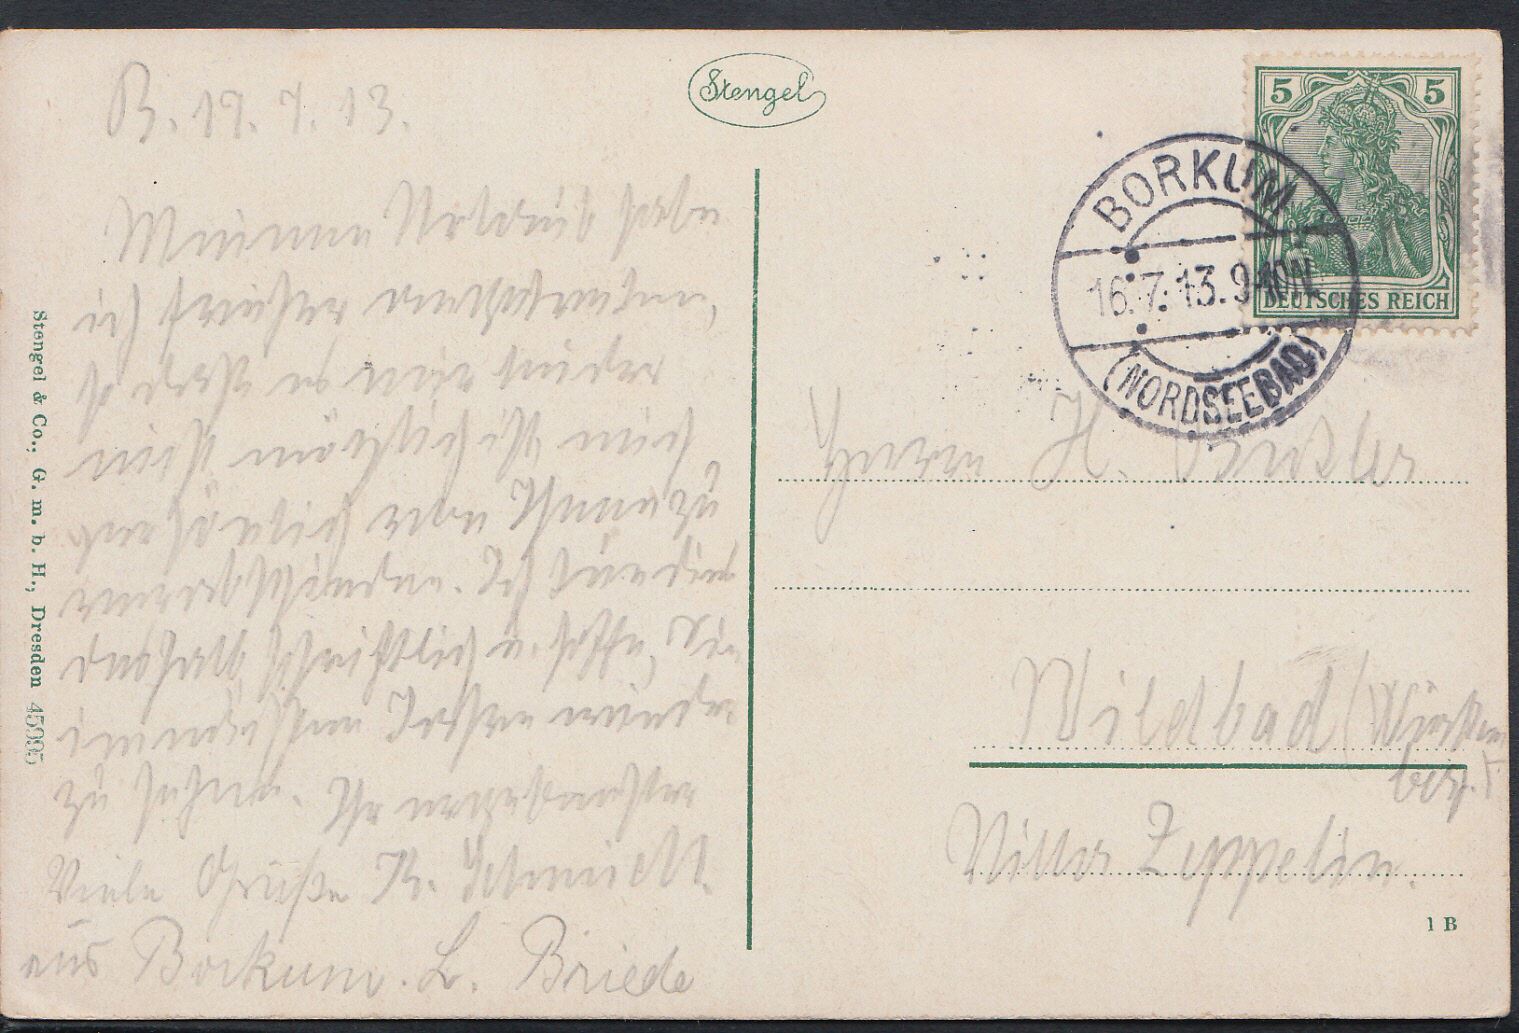 Stengel
B. 17. 7. 13.
Meinen Urlaub habe
ich früher
so daß es mir leider
nicht möglich ist, mich
persönlich von Ihnen zu
verabschieden. Ich tue dies
deshalb schriftlich u. hoffe, Sie
im nächsten Jahre wieder
zu sehen. Ihr ergebenster
Viele Grüße K. Schmidt.
aus Borkum. L. Briede
Stengel & Co., G. m. b. H., Dresden 45995
5 5
DEUTSCHES REICH
BORKUM
16.7.13.9-10N.
(NORDSEEBAD)
Herrn H.
Wildbad (Württem
berg.)
Villa Zeppelin.
1 B